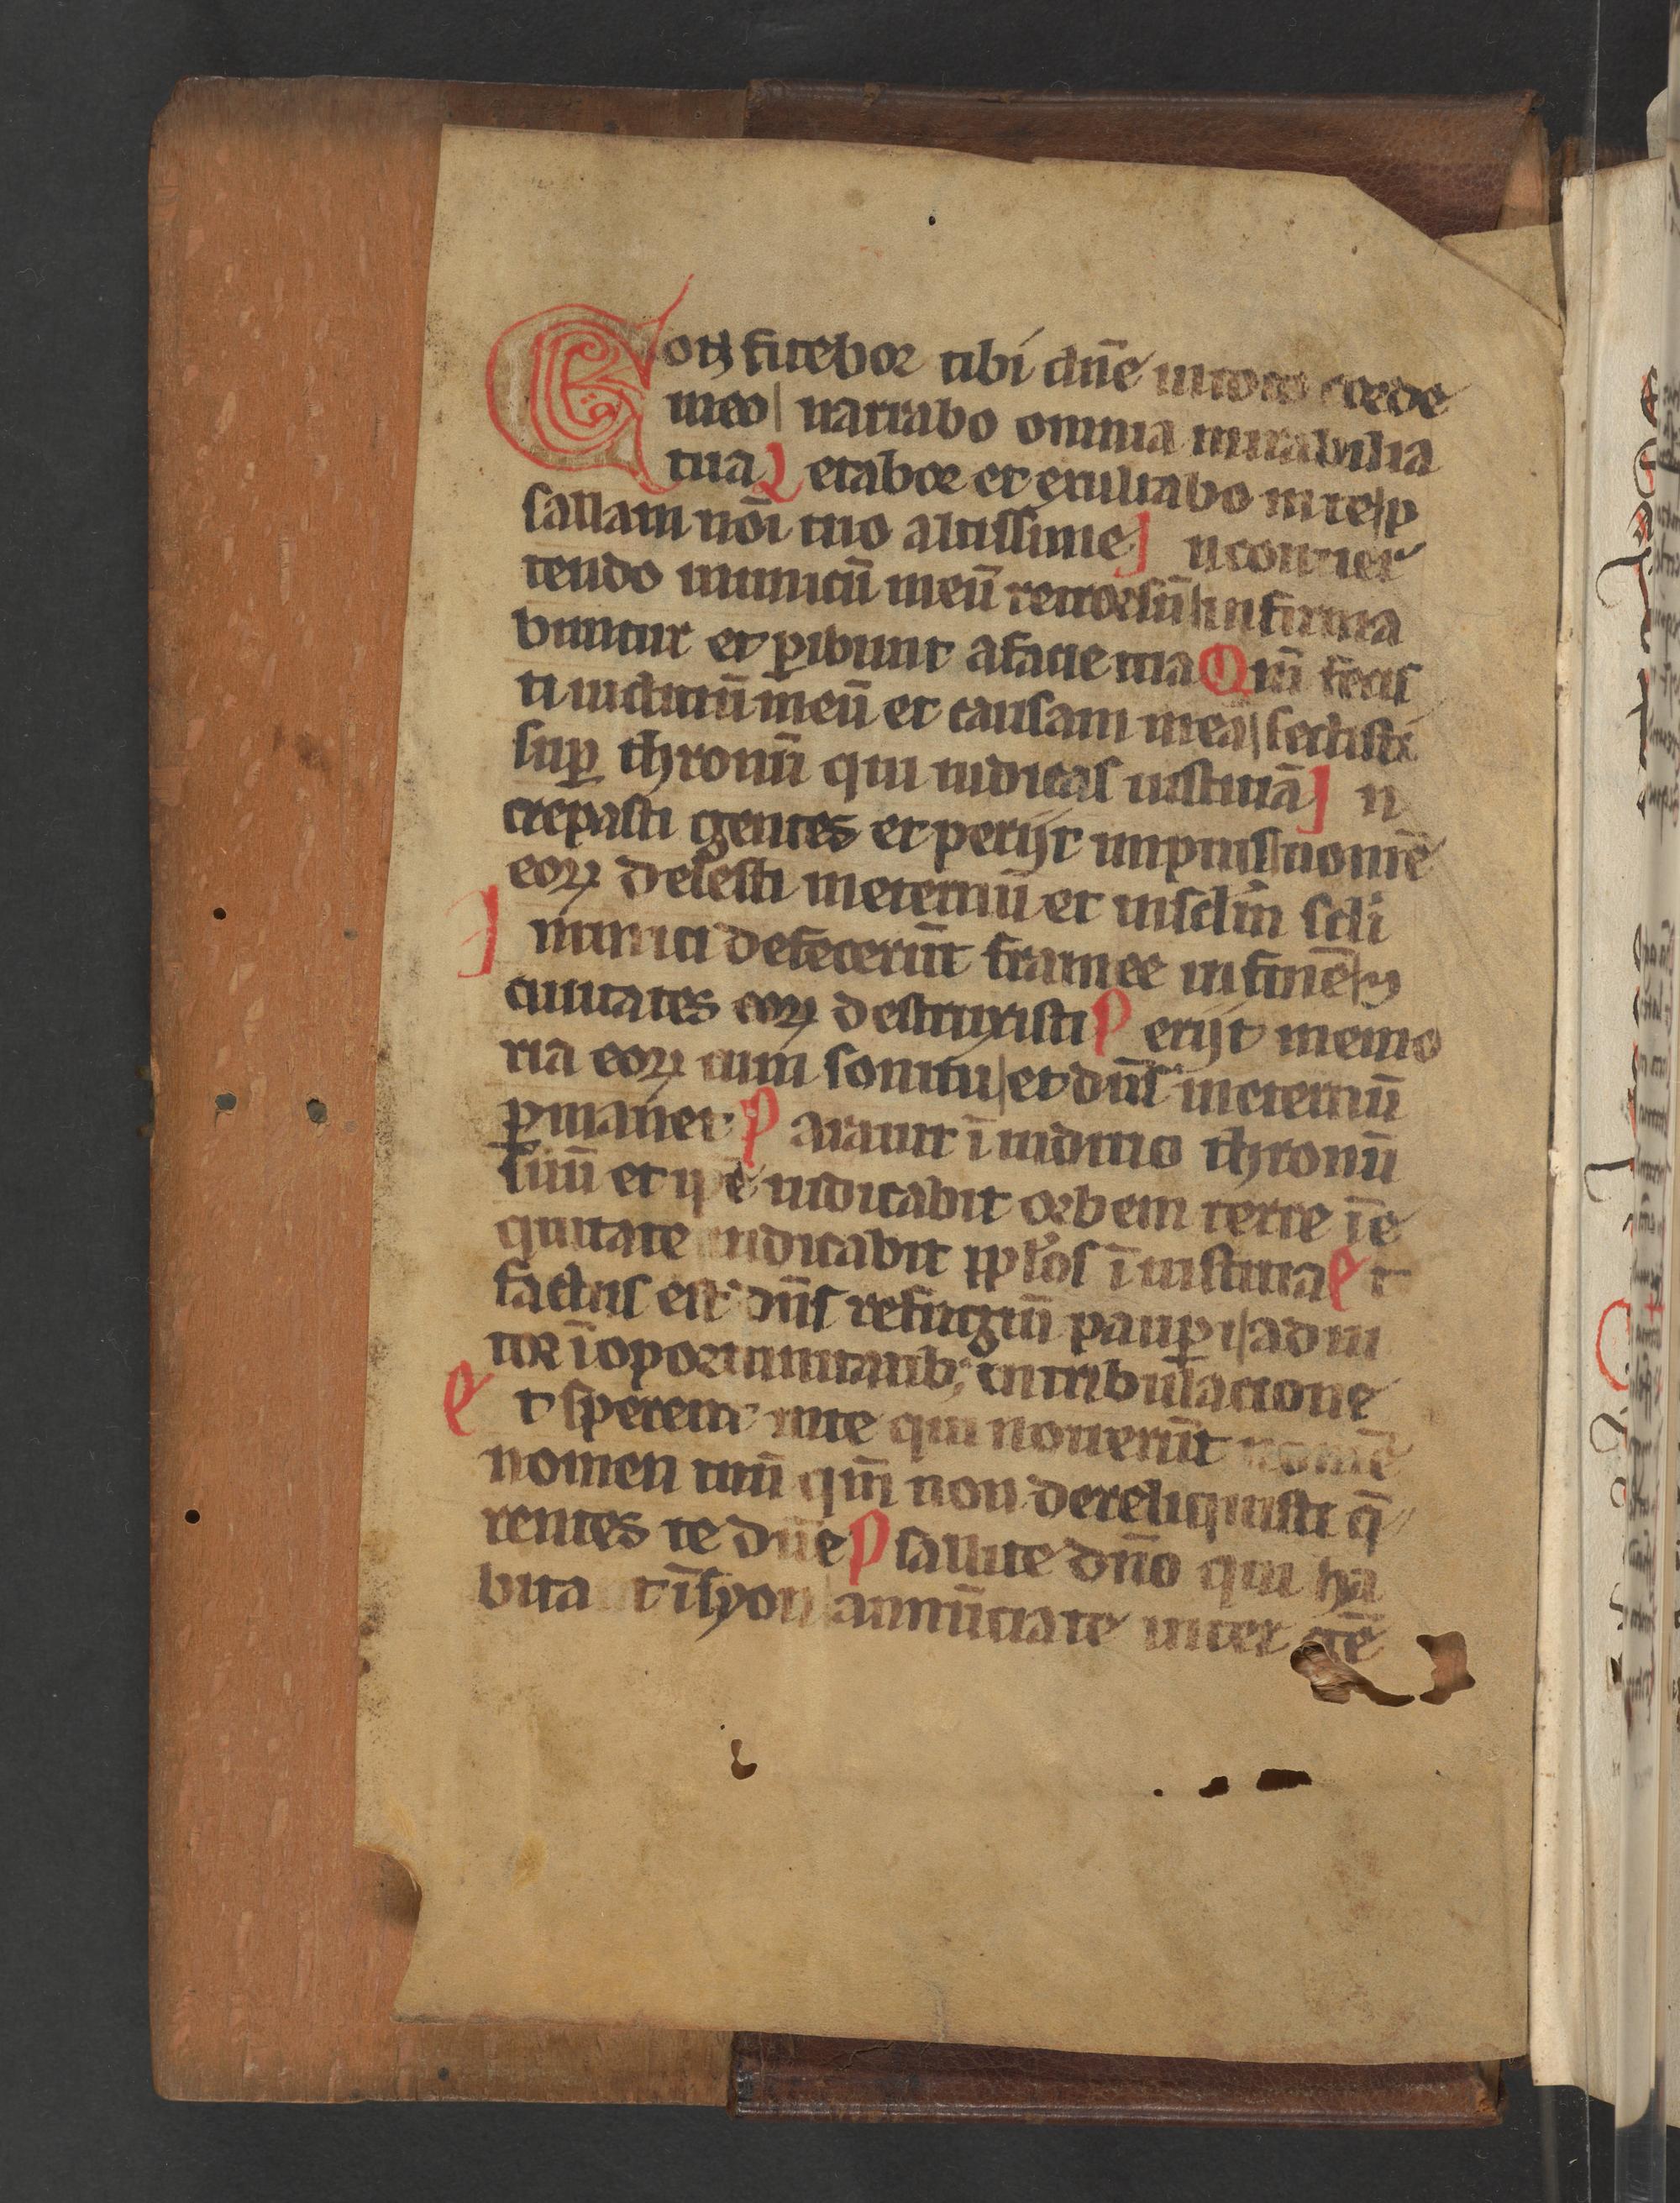 Confitebor tibi dn̄e in toto corde
meo | narrabo omnia mirabilia
tua Letabor et exultabo in te | p
sallam nōi tuo altissime In conuer
tendo inimicū meū retrorsū | infirma
buntur et ꝑibunt a facie tua Qm̄ fecis
ti iudiciū meū et causam meā | sedisti
suꝑ thronū qui iudicas iusticiā In
crepasti gentes et perijt impius | nomē
eoꝝ delesti in eternū et in sc̄lm sc̄li
Inimici defecerūt framee in finē | ⁊
ciuitates eoꝝ destruxisti Perijt memo
ria eoꝝ cum sonitu | et dn̄s in eternū
ꝑmanet Parauit ī iudicio thronū
suū et ip̄e iudicabit orbem terre ī e
quitate iudicabit pp̄los ī iusticia Et
factus est dn̄s refugiū pauꝑi | adiu
tor ī oportunitatib; in tribulacione
Et sperent in te qui nouerūt nomē
nomen tuū qm̄ non dereliquisti q̄
rentes te dn̄e Psallite dn̄o qui ha
bita t ī syon | annūciate inter gē